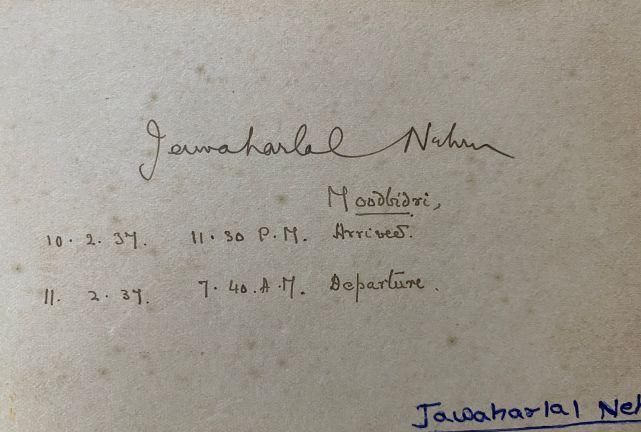 Jawaharlal Nehru
Moodbidri,
10. 2. 37. 11. 30 P.M. Arrived.
11. 2. 37. 7. 40. A.M. Departure.
Jawaharlal Neh